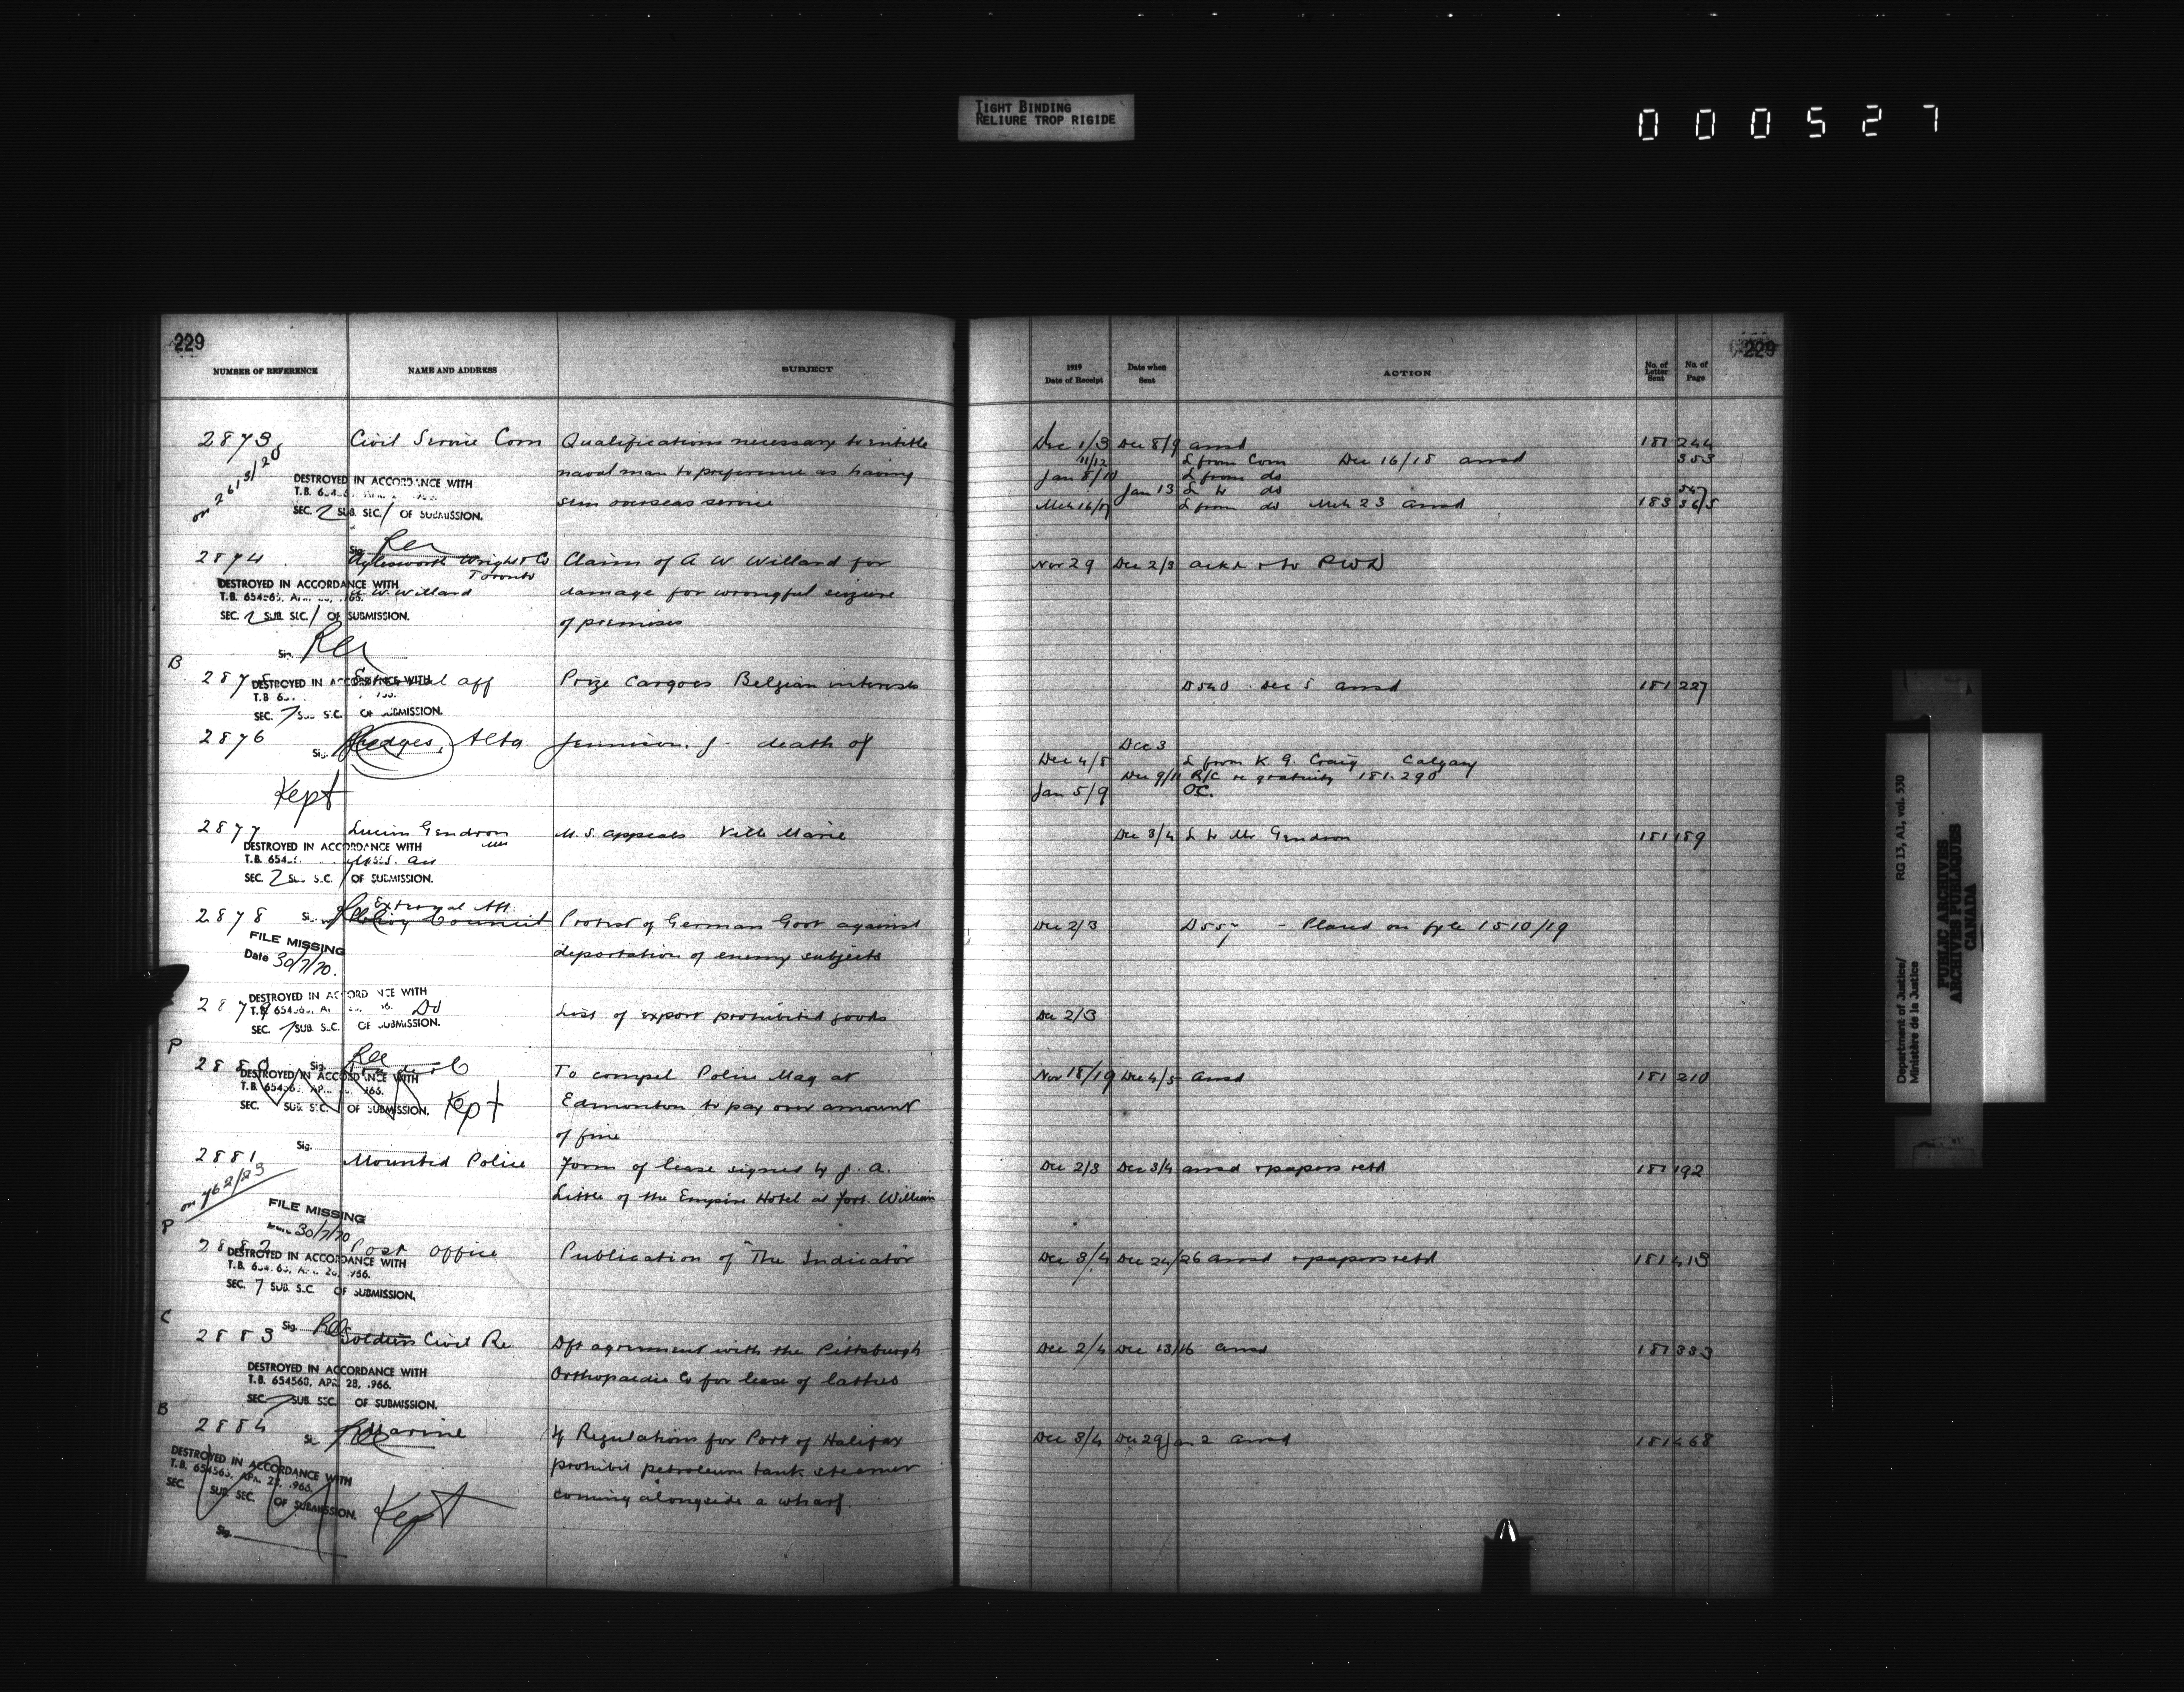 TIGHT BINDING
RELIURE TROP RIGIDE
000527
229
NUMBER OF REFERENCE NAME AND ADDRESS SUBJECT
2873 Civil Service Com Qualifications necessary to entitle
on 2613/20 naval man to preference as having
DESTROYED IN ACCORDANCE WITH
SEC. 2 SUB. SEC. 1 OF SUBMISSION. seen overseas service
Sig.
2874 Aylesworth Wright & Co Claim of A W Willard for
Toronto
DESTROYED IN ACCORDANCE WITH
A W Willard damage for wrongful seizure
SEC. 2 SUB. SEC. 1 OF SUBMISSION.
of premises
Sig.
B
2875 External aff Prize Cargoes Belgian interests
DESTROYED IN ACCORDANCE WITH
SEC. 7 SUB. SEC. OF SUBMISSION.
2876 Alta Jennison, J - death of
Sig.
Kept
2877 Lucien Gendron M.S. appeals Ville Marie
DESTROYED IN ACCORDANCE WITH
SEC. 2 SUB. SEC. 1 OF SUBMISSION.
External Aff.
2878 Privy Council Protest of German Govt against
FILE MISSING
Date 30/7/70. deportation of enemy subjects
DESTROYED IN ACCORDANCE WITH
2879 Do List of export prohibited goods
SEC. 7 SUB. SEC. OF SUBMISSION.
P
2880 Sig. To compel Police Mag at
DESTROYED IN ACCORDANCE WITH
SEC. SUB. SEC. OF SUBMISSION. Kept Edmonton to pay over amount
of fine
Sig.
2881 Mounted Police Form of lease signed by J. A.
on 762/23 Little of the Empire Hotel at Fort William
FILE MISSING
30/7/70
P
2882 Post Office Publication of "The Indicator"
DESTROYED IN ACCORDANCE WITH
SEC. 7 SUB. SEC. OF SUBMISSION.
C
Sig.
2883 Soldiers Civil Re Dft agreement with the Pittsburgh
DESTROYED IN ACCORDANCE WITH
T.B. 654563, APR. 28, 1966. Orthopaedic Co for lease of lathes
SEC. 7 SUB. SEC. OF SUBMISSION.
B
2884 Marine If Regulations for Port of Halifax
DESTROYED IN ACCORDANCE WITH
T.B. 654563, APR. 28, 1966. prohibit petroleum tank steamer
SEC. SUB. SEC. OF SUBMISSION. Kept coming alongside a wharf
Sig.
229
1919 Date of Receipt Date when Sent ACTION No. of Letter Sent No. of Page
Dec 1/3 Dec 8/9 ansd 181 244
11/12 L from Com Dec 16/18 ansd 353
Jan 8/10 L from do
Jan 13 L to do
Mch 16/17 L from do Mch 23 ansd 183 365
Nov 29 Dec 2/3 ackd & to PWD
D540 Dec 5 ansd 181 227
Dec 3
Dec 4/8 L from K. G. Craig Calgary
Dec 9/11 R/C re gratuity 181.290
Jan 5/9 OC.
Dec 3/4 L to Mr Gendron 181 189
Dec 2/3 D557 - Placed on fyle 1510/19
Dec 2/3
Nov 18/19 Dec 4/5 ansd 181 210
Dec 2/3 Dec 3/4 ansd & papers retd 181 192
Dec 3/4 Dec 24/26 ansd & papers retd 181 413
Dec 2/4 Dec 13/16 ansd 181 333
Dec 3/4 Dec 29 Jan 2 ansd 181 468
Department of Justice/ RG 13, A1, vol. 530
Ministère de la Justice
PUBLIC ARCHIVES
ARCHIVES PUBLIQUES
CANADA